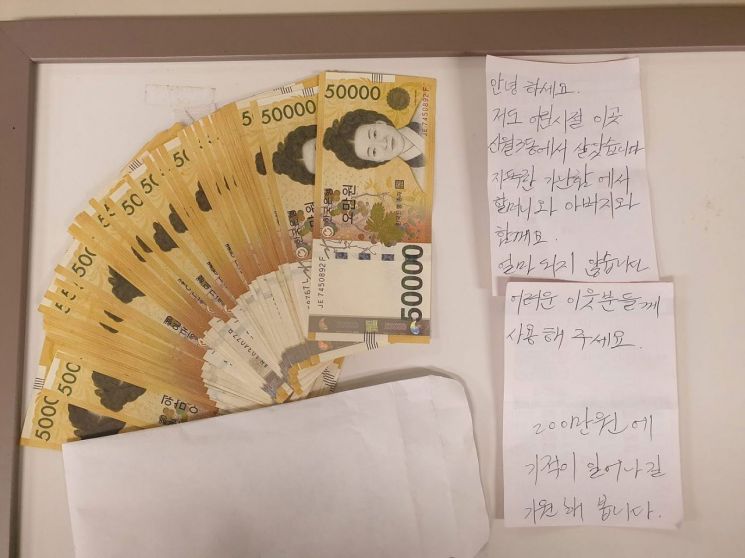 50000
JE 7450892 F
한국은행
오만원
50000
JE 7450892 F
50000
50000
안녕하세요.
저도 어린시절 이곳
신월3동에서 살았습니다
지독한 가난함에서
할머니와 아버지와
함께요.
얼마 되지 않습니다
어려운 이웃분들께
사용해 주세요.
200만원에
기적이 일어나길
기원해 봅니다.